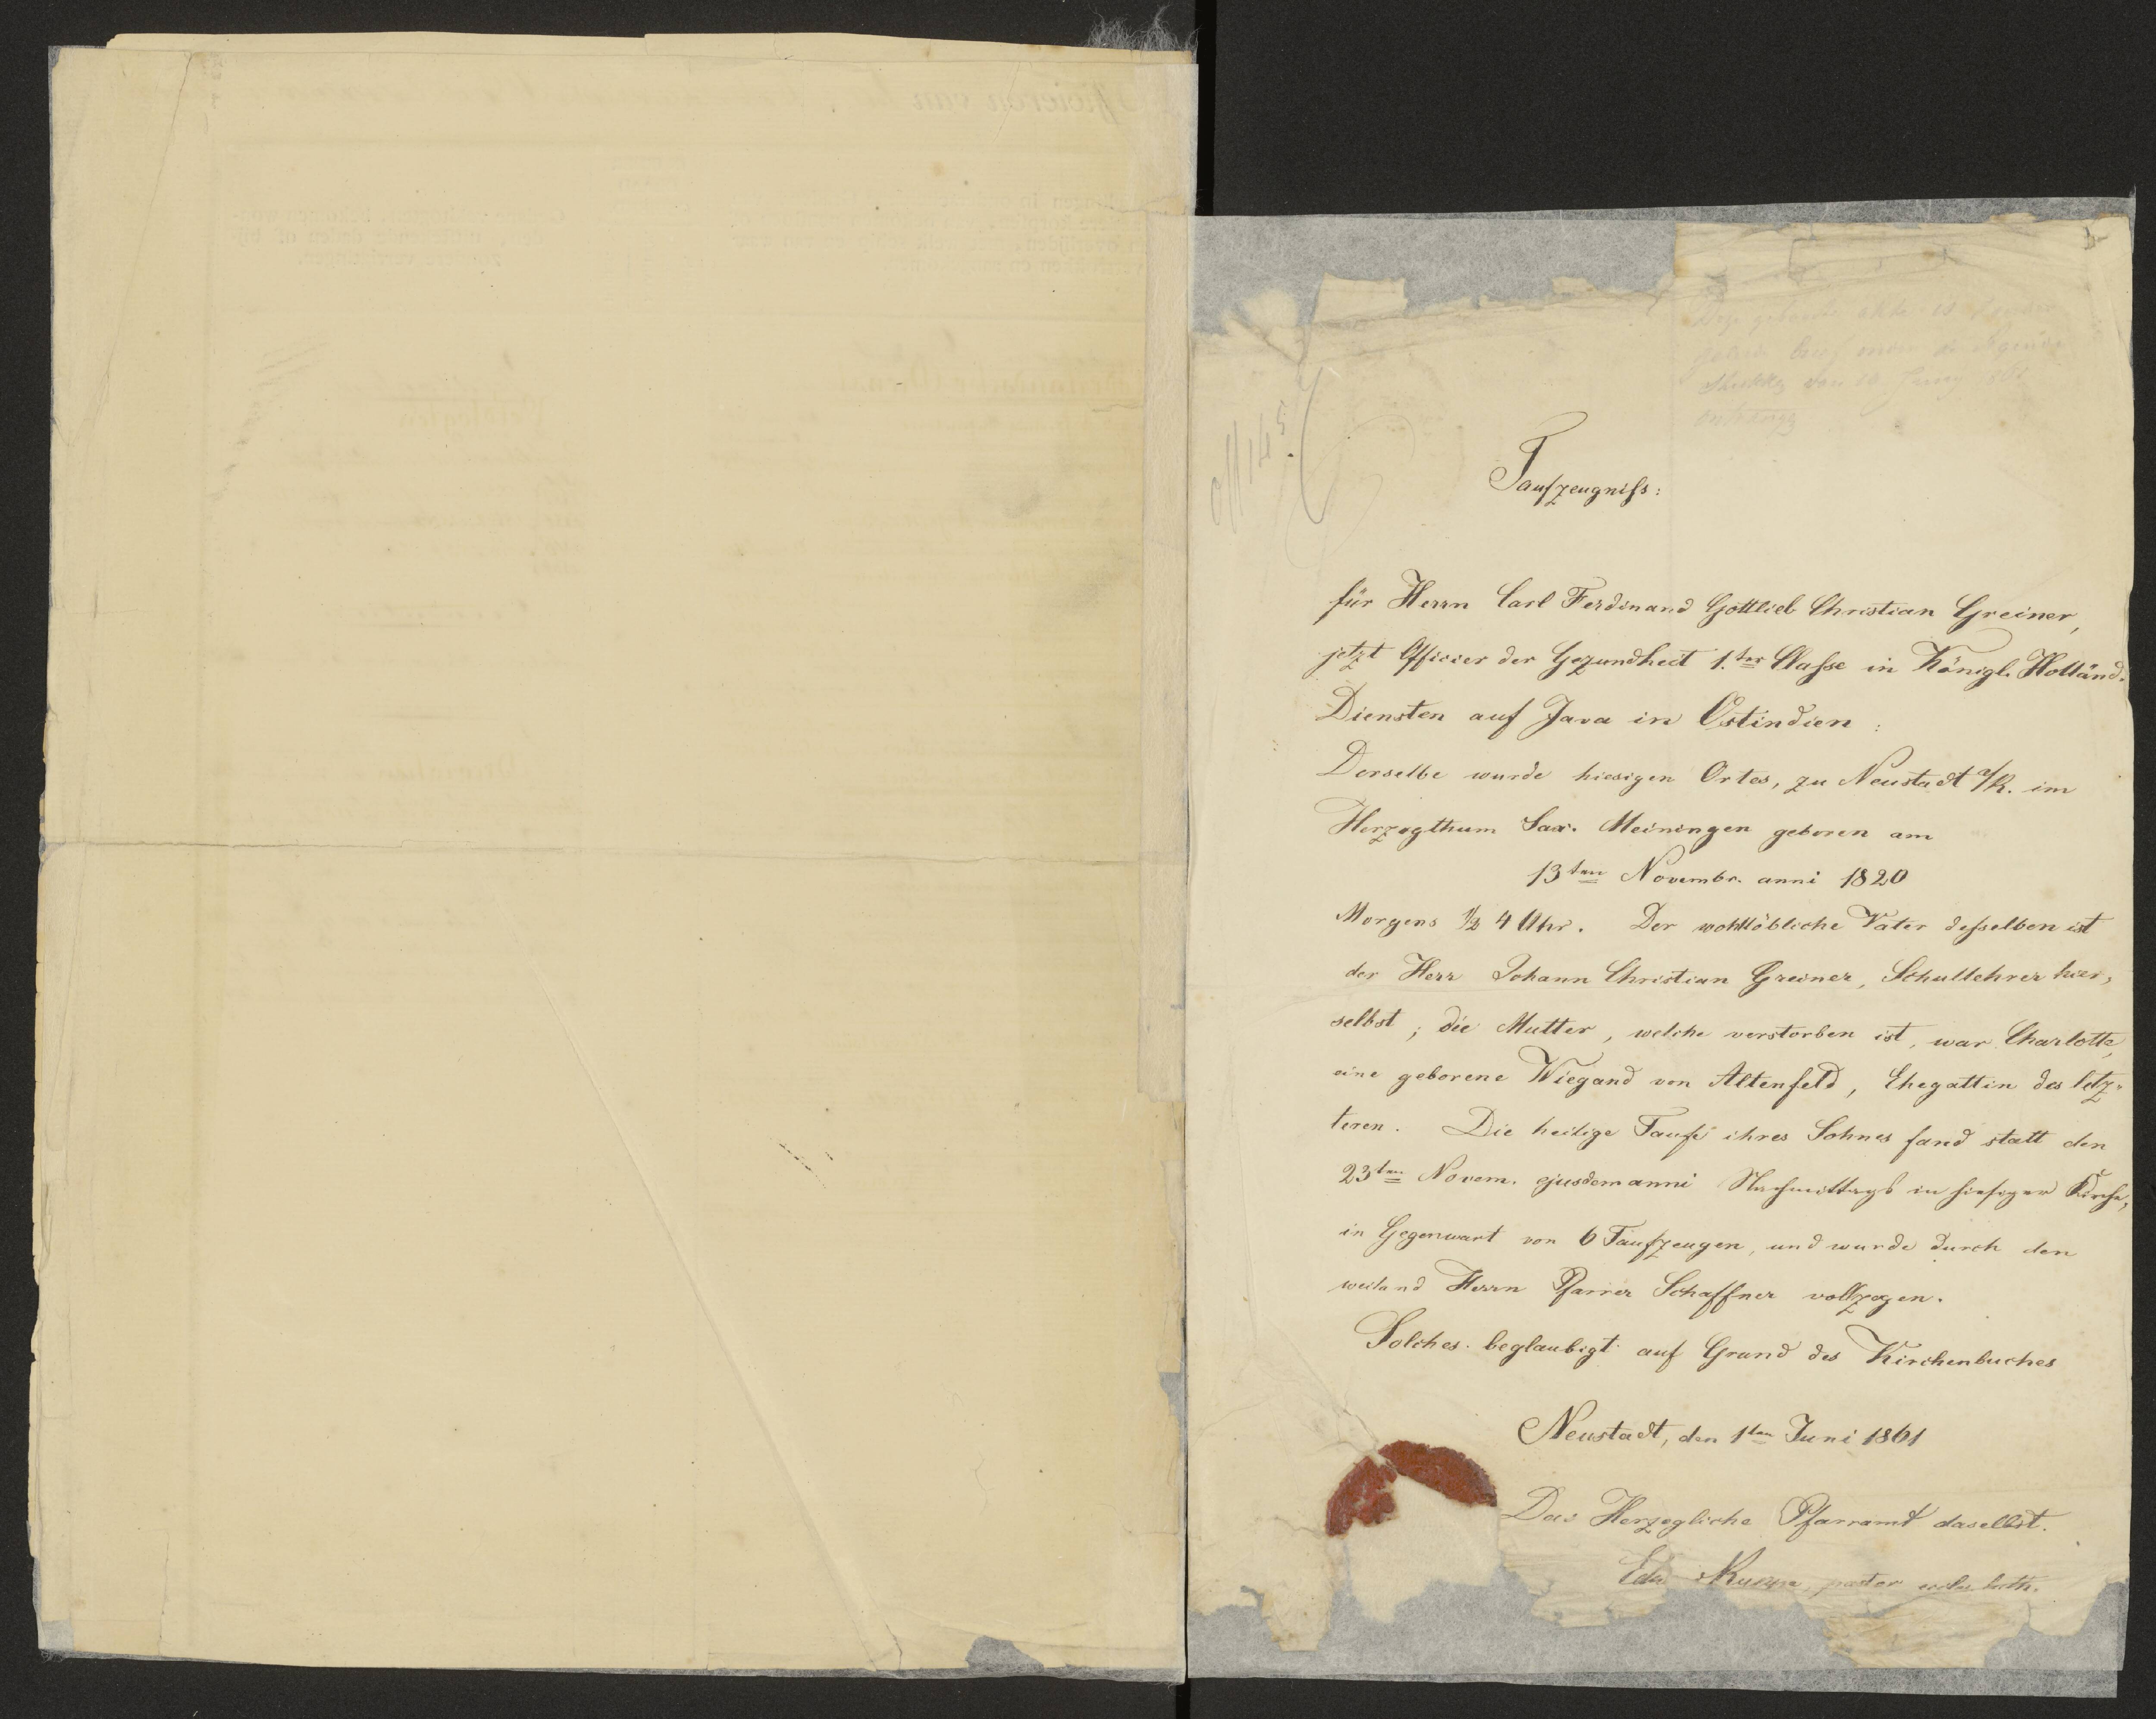 Off 145.
Deze geboorte akte is
Taufzeugniſs:
für Herrn Carl Ferdinand Gottlieb Christian Greiner,
jetzt Officier der Gezundheit 1.ter Claſse in Königl. Holländ.
Diensten auf Java in Ostindien:
Derselbe wurde hiesigen Ortes, zu Neustadt a/R. im
Herzogthum Sax. Meiningen geboren am
13ten Novembr. anni 1820
Morgens ½ 4 Uhr. Der wohllöbliche Vater deſselben ist
der Herr Johann Christian Greiner, Schullehrer hier,
selbst; die Mutter, welche verstorben ist, war Charlotte,
eine geborene Wiegand von Altenfeld, Ehegattin des letz-
teren. Die heilige Taufe ihres Sohnes fand statt den
23ten Novem. ejusdem anni Nachmittags in hiesiger Kirche,
in Gegenwart von 6 Taufzeugen, und wurde durch den
weiland Herrn Pfarrer Schaffner vollzogen.
Solches beglaubigt auf Grund des Kirchenbuches
Neustadt, den 1ten Juni 1861
Das Herzogliche Pfarramt daselbst.
pastor